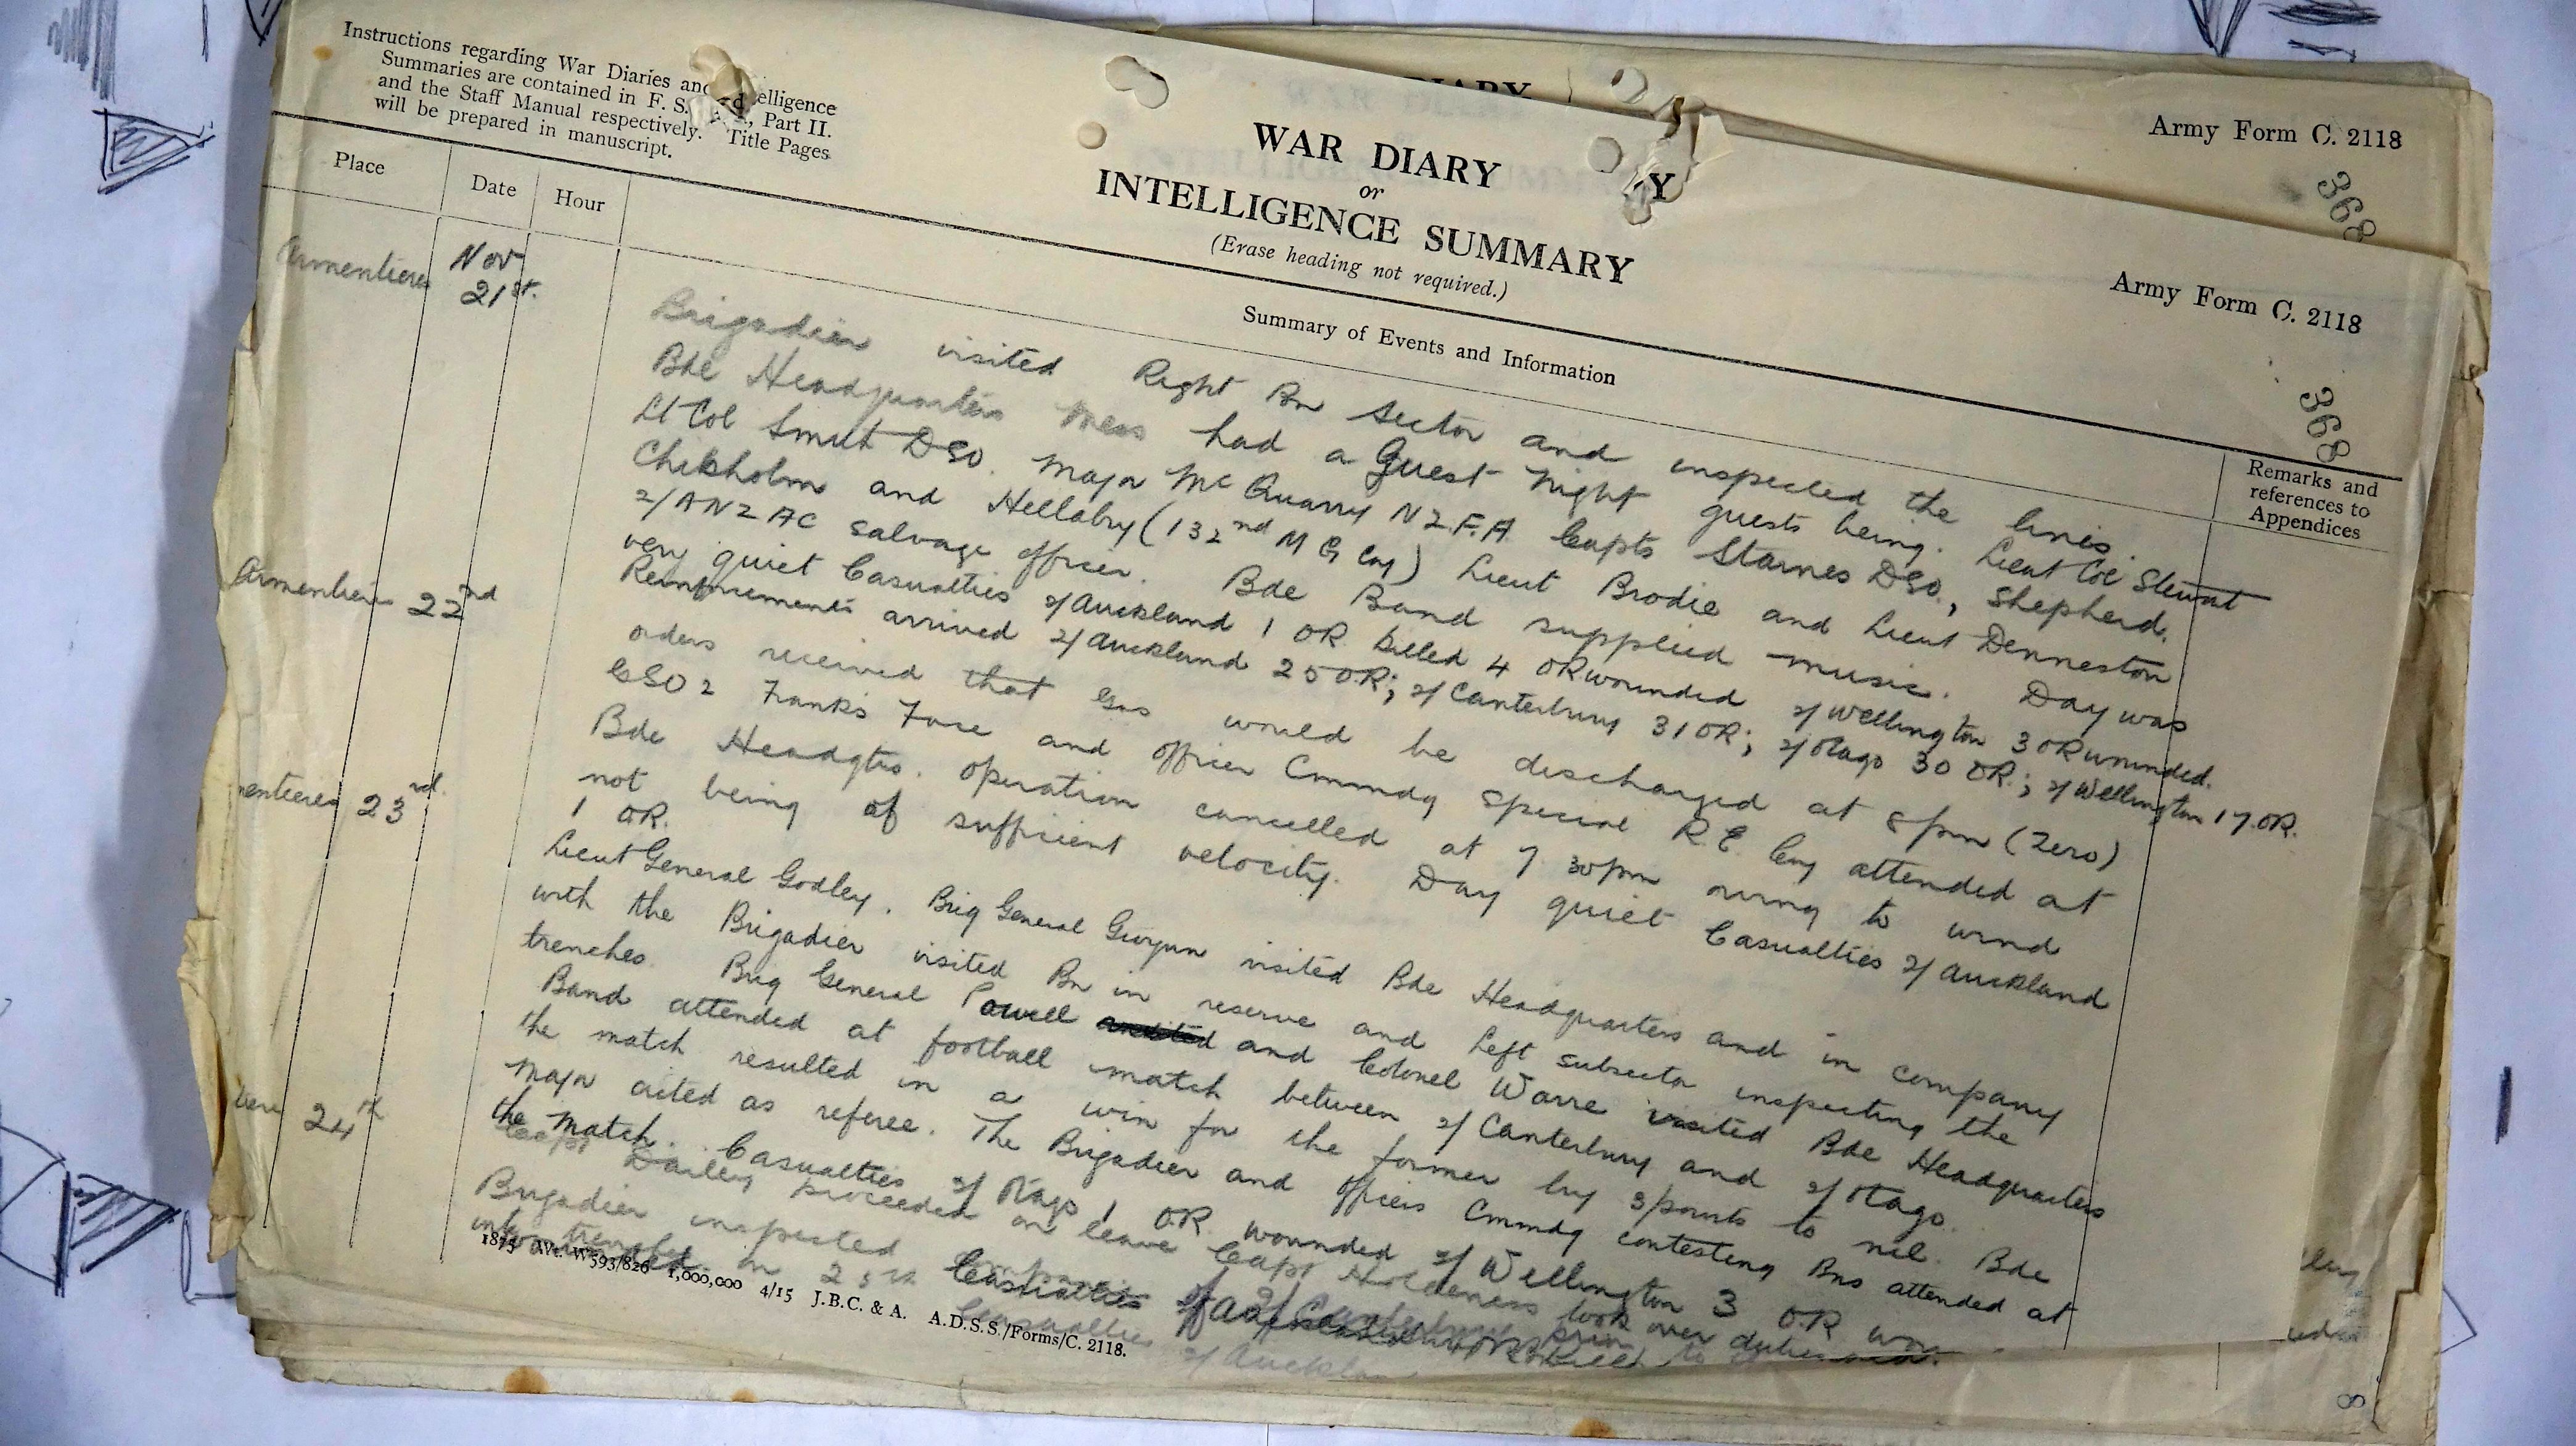 Instructions regarding War Diaries and Intelligence
Summaries are contained in F. S. , Part II.
and the Staff Manual respectively. Title Pages
will be prepared in manuscript.
WAR DIARY
or
INTELLIGENCE SUMMARY
(Erase heading not required.)
DIARY
Y
Army Form C. 2118
368
Army Form C. 2118
368
Place
Date
Hour
Summary of Events and Information
Remarks and
references to
Appendices
Armentieres Nov 21st.
Brigadier visited Right Bn Sector and inspected the lines.
Bde Headquarters Mess had a Guest Night guests being. Lieut Col Stewart
Lt Col Smith DSO. Major McQuarry NZ.F.A. Capts Starnes DSO., Shepherd.
Chisholm and Hellaby (132nd M G Coy) Lieut Brodie and Lieut Denneston
2/ANZAC Salvage Officer. Bde Band supplied music. Day was
very quiet Casualties 2/Auckland 1 OR killed 4 OR wounded 2/Wellington 3 OR wounded.
Reinforcements arrived 2/Auckland 25 OR; 2/Canterbury 31 OR; 2/Otago 30 OR.; 2/Wellington 17 OR.
Armentieres 22nd
orders received that Gas would be discharged at 8 pm (Zero)
GSO 2 Franks Force and Officer Cmmdg Special R.E Coy attended at
Bde Headqtrs. operation cancelled at 7 30pm owing to wind
not being of sufficient velocity. Day quiet Casualties 2/Auckland
1 OR.
mentieres 23rd.
Lieut General Godley. Brig General Gwynn visited Bde Headquarters and in company
with the Brigadier visited Bn in reserve and Left subsector inspecting the
trenches. Brig General Powell and Colonel Warre visited Bde Headquarters
Band attended at football match between 2/Canterbury and 2/Otago.
the match resulted in a win for the former by 3 points to nil. Bde
Major acted as referee. The Brigadier and Officers Cmmdg contesting Bns attended at
the match. Casualties 2/Otago 1 OR. wounded 2/Wellington 3 OR
24th
Capt Dailey proceeded on leave Capt Holderness took over duties
Brigadier inspected
Casualties
2/Auckland
1875 Wt. W593/826 1,000,000 4/15 J.B.C. & A. A.D.S.S./Forms/C. 2118.
8